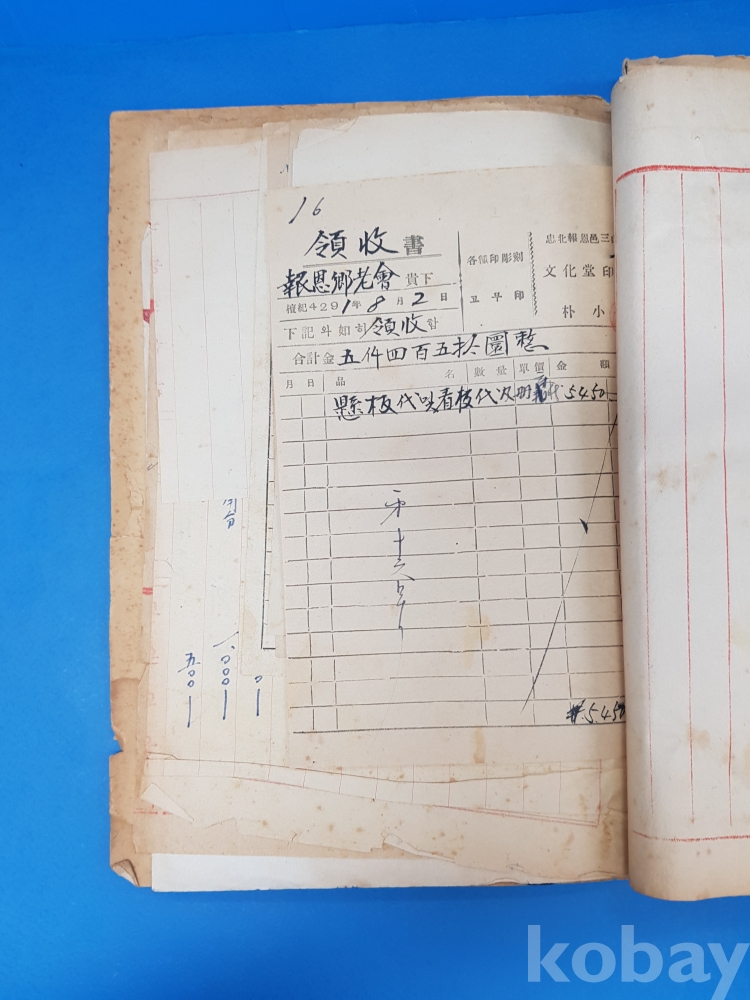 16
領收書
報恩鄕老會 貴下
檀紀4291年8月2日
下記와 如히 領收함
合計金 五仟四百五拾圜整
各種印彫刻
고무印
忠北報恩邑三
文化堂印
朴小
月 日 品名 數量 單價 金額
懸板代 및 看板代 及 5450
第十六号
5450
一、000
五00
kobay